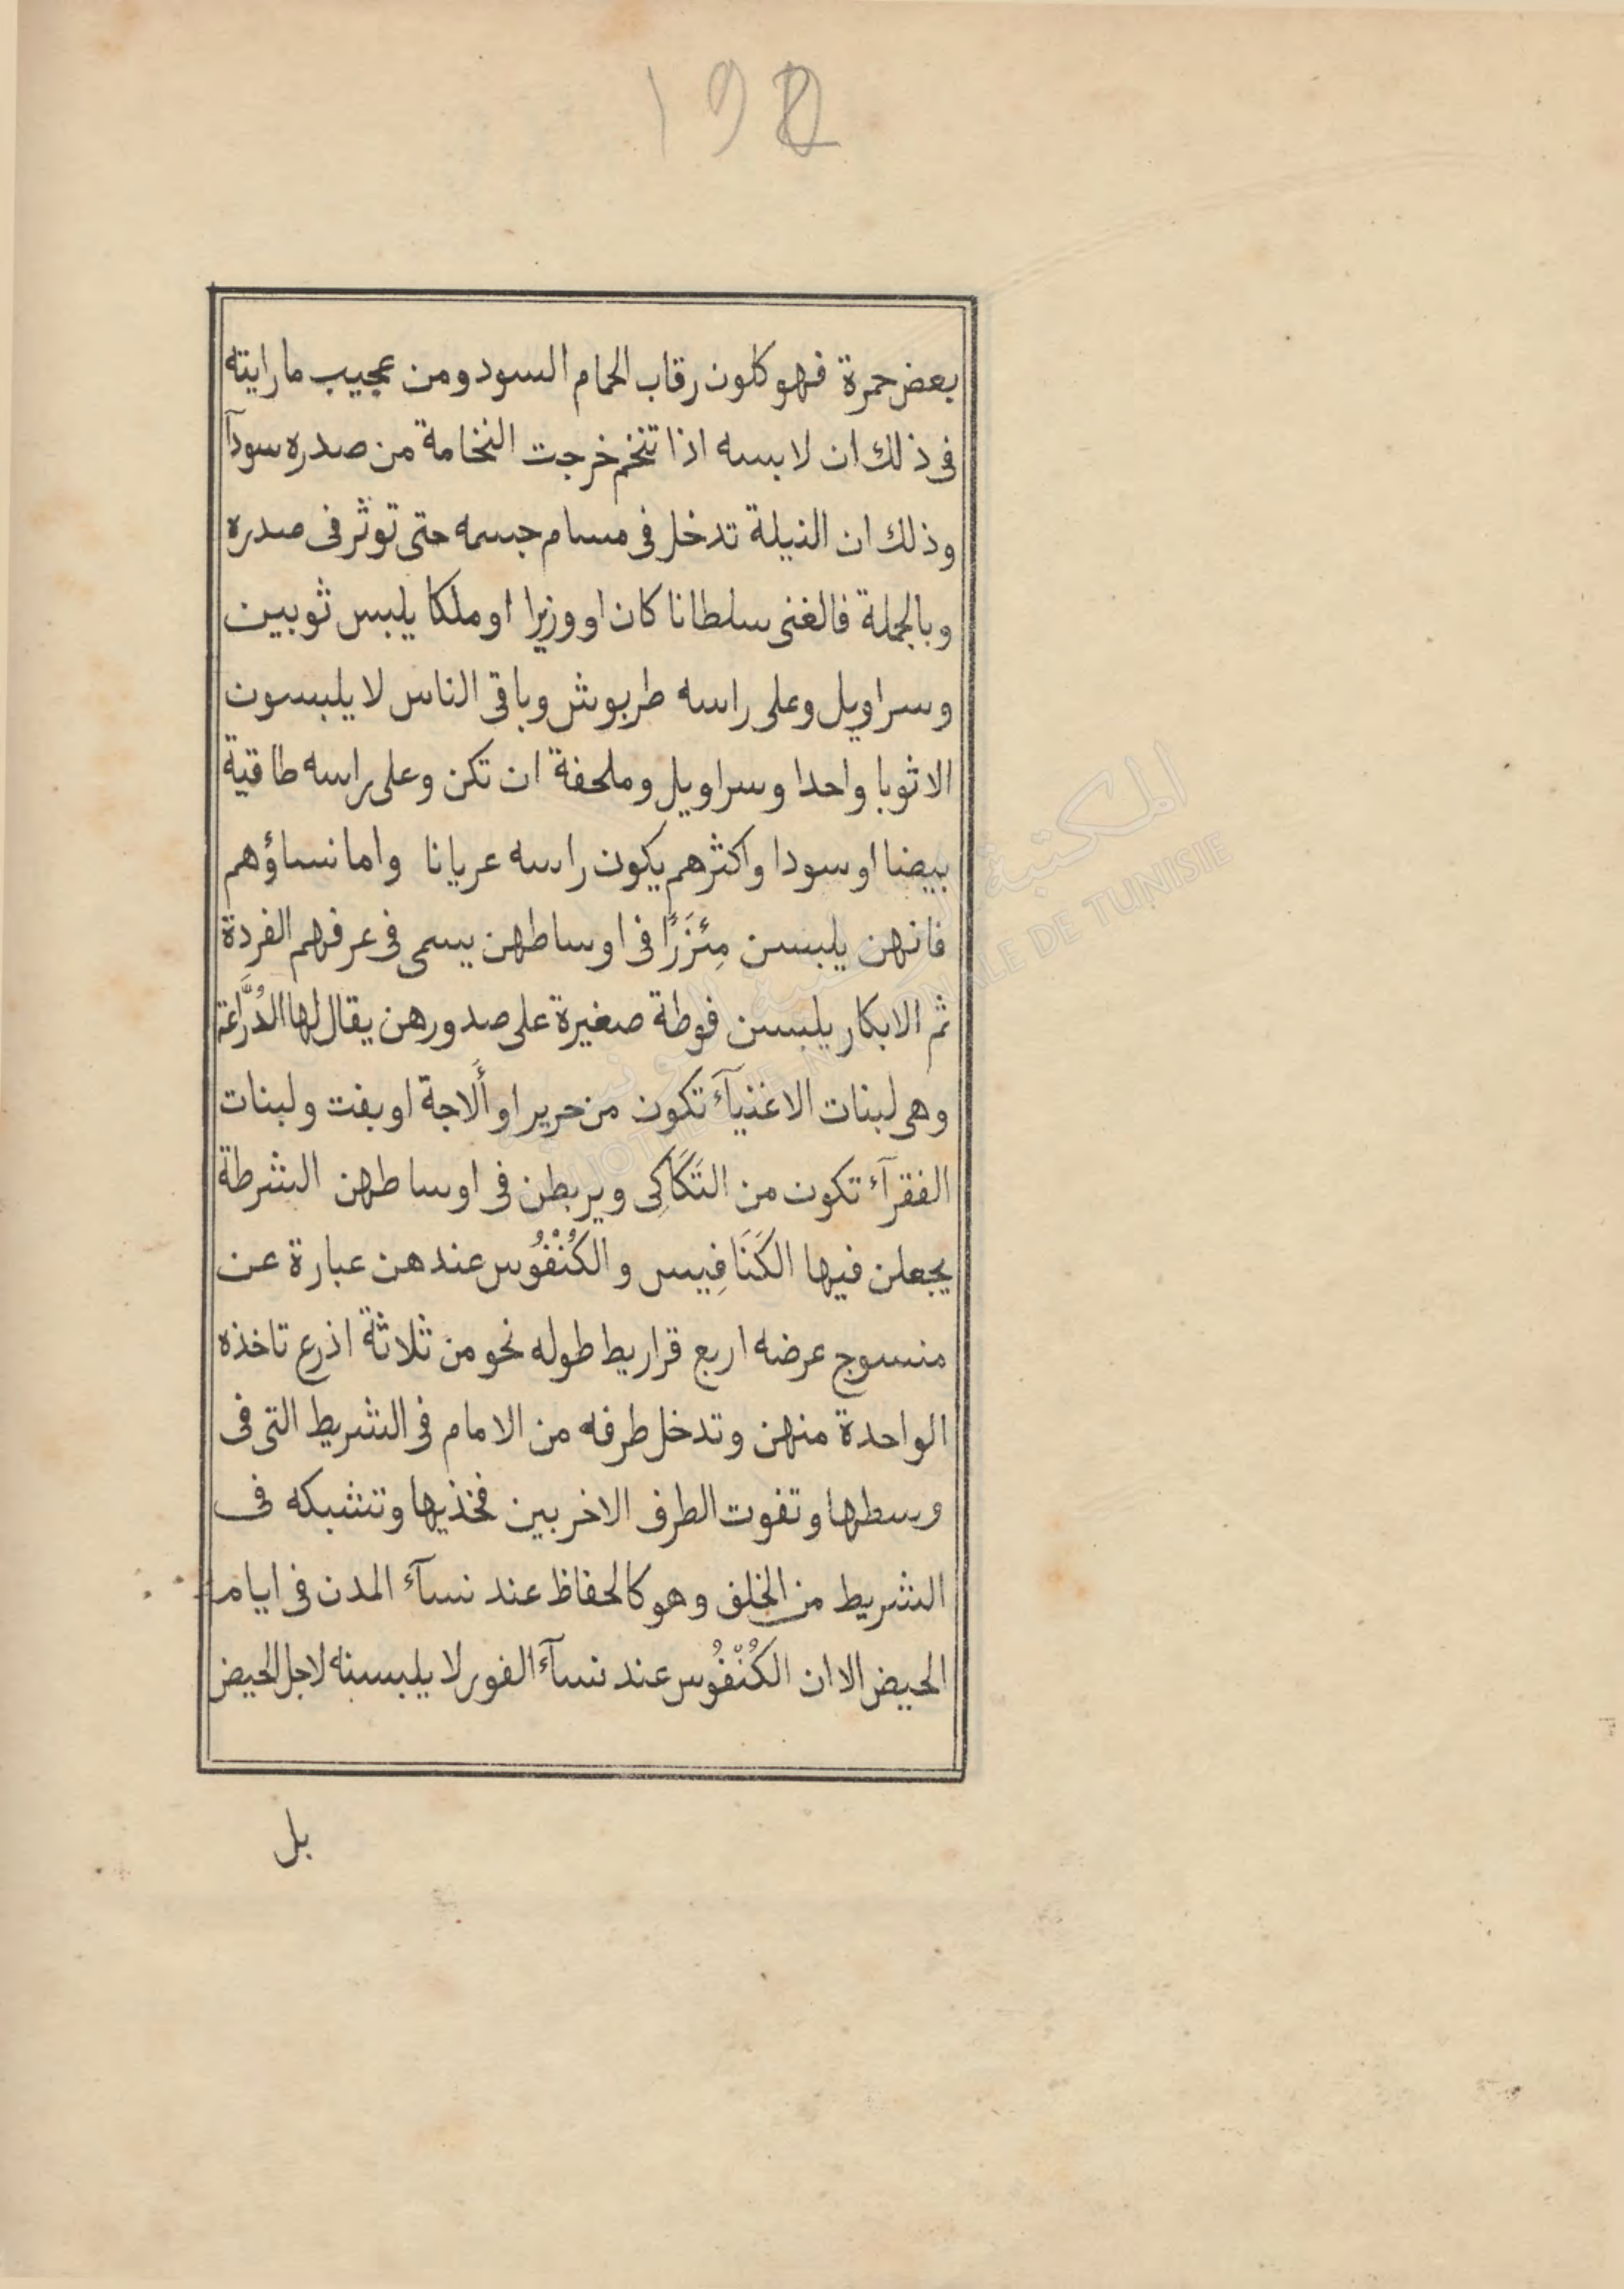 192
بعض حمرة فهو كلون رقاب الحمام السود ومن عجيب ما رايته
فى ذلك ان لابسه اذا تنخم خرجت النخامة من صدره سودآ
وذلك ان النيلة تدخل فى مسام جسمه حتى توثر فى صدره
وبالجملة فالغنى سلطانا كان او وزيرا او ملكا يلبس ثوبين
وسراويل وعلى راسه طربوش وباقى الناس لا يلبسون
الا ثوبا واحدا وسراويل وملحفة ان تكن وعلى راسه طاقية
بيضا او سودا واكثرهم يكون راسه عريانا واما نساؤهم
فانهن يلبسن مِئْزَرًا فى اوساطهن يسمى فى عرفهم الفردة
ثم الابكار يلبسن فوطة صغيرة على صدورهن يقال لها الدُرَّاعَة
وهى لبنات الاغنيآء تكون من حرير او أَلَاجة او بفت ولبنات
الفقرآء تكون من التَكَاكِى ويربطن فى اوساطهن الشرطة
يجعلن فيها الكَنَافِيس والكُنْفُوس عندهن عبارة عن
منسوج عرضه اربع قراريط طوله نحو من ثلاثة اذرع تاخذه
الواحدة منهن وتدخل طرفه من الامام فى الشريط التى فى
وسطها وتفوت الطرف الاخر بين فخذيها وتشبكه فى
الشريط من الخلف وهو كالحفاظ عند نسآء المدن فى ايام
الحيض الا ان الكُنْفُوس عند نسآء الفور لا يلبسنه لاجل الحيض
بل
المكتبة
BIBLIOTHEQUE NATIONALE DE TUNISIE